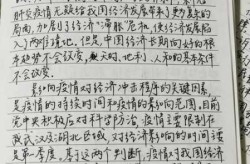 肺炎疫情无疑给我国经济发展带来了更为复杂的
局面,加剧了经济"滞胀"危机,使经济发展陷
入)两难境地。但是,中国经济长期向好的根
本趋势不会改变,天时、地利、人和的基本条件
不会改变。
影响疫情对经济冲击程度的关键因素,
是疫情的持续时间和疫情的影响范围,目前
党中央积极应对科学防治,疫情主要限制在
武汉及湖北区域,对经济影响的时间主要
是第一季度,基于这两个判断,疫情对我国经济